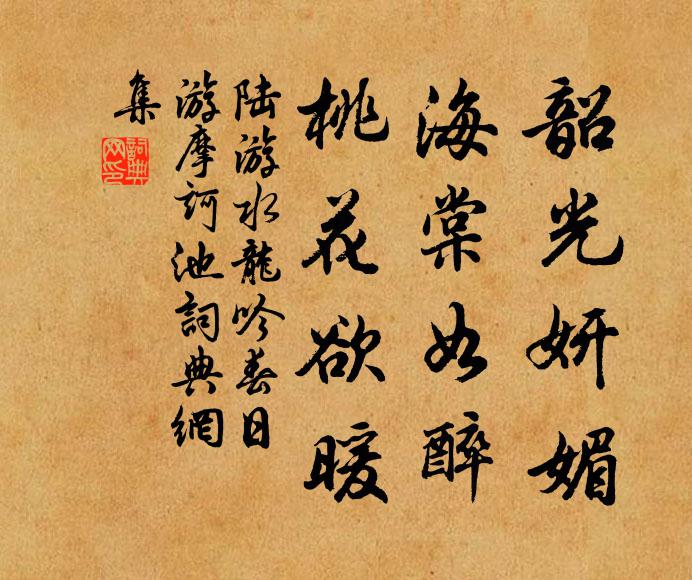 韶光妍媚
海棠如醉
桃花欲暖
陆游水龍吟春日
游摩訶池詞典網
集
詞典
网印